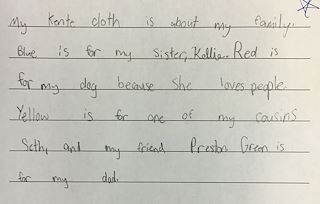 My Kente cloth is about my family.
Blue is for my sister, Kallie. Red is
for my dog because she loves people.
Yellow is for one of my cousins
Seth, and my friend Preston Green is
for my dad.